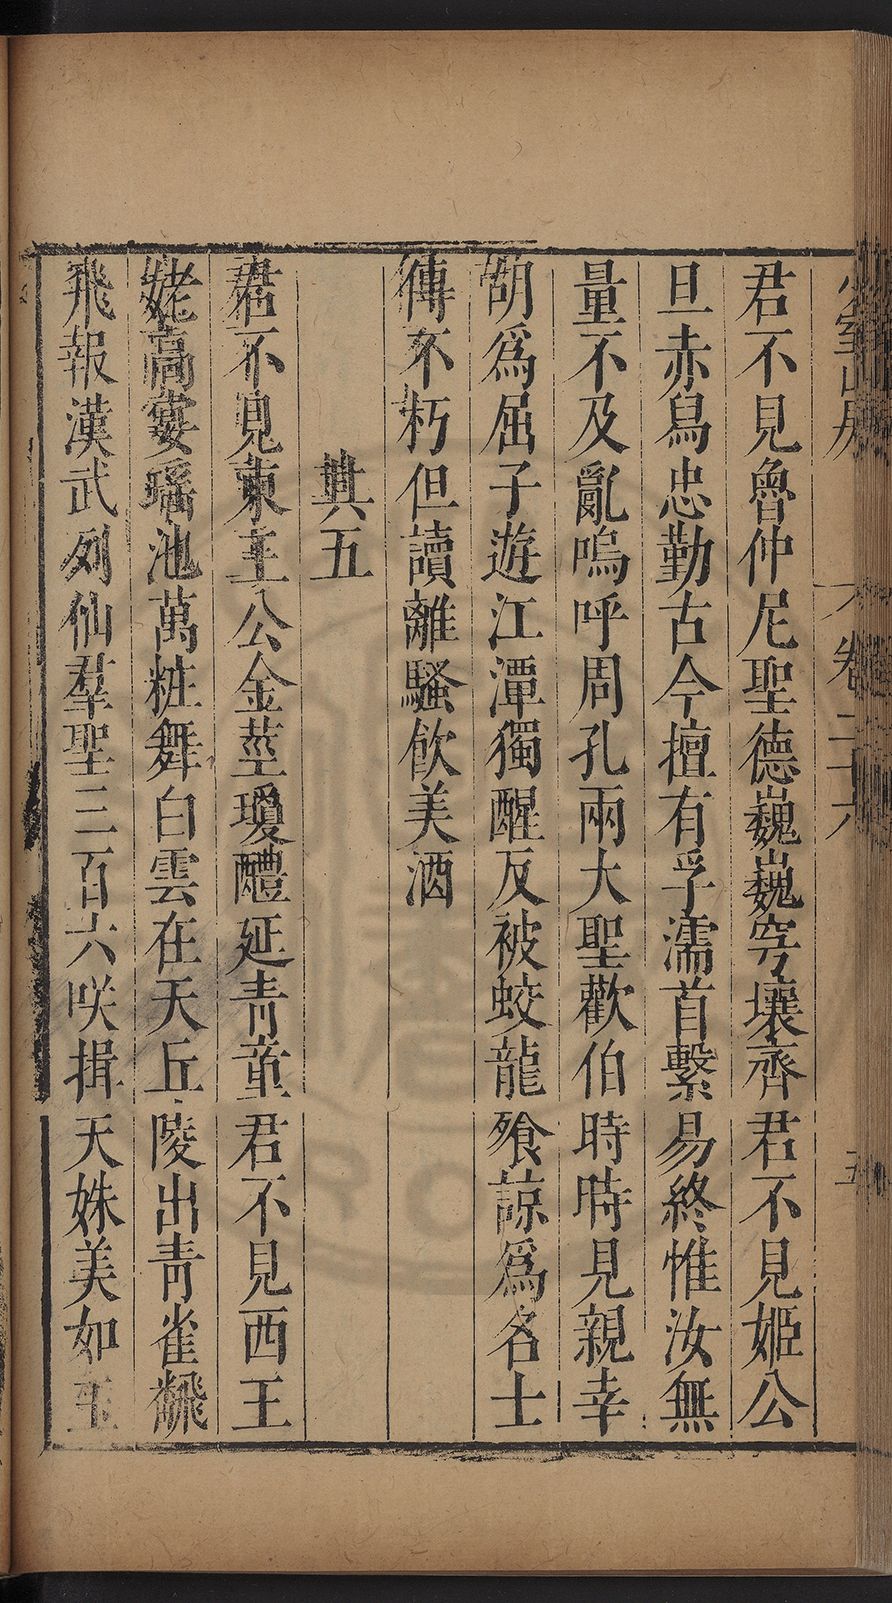 少室山房 卷二十六 五
君不見魯仲尼聖德巍巍穹壤齊君不見姬公
旦赤舄忠勤古今擅有孚濡首繫易終惟汝無
量不及亂嗚呼周孔兩大聖歡伯時時見親幸
胡爲屈子遊江潭獨醒反被蛟龍飱諒爲名士
傳不朽但讀離騷飲美酒
其五
君不見東王公金莖瓊醴延青童君不見西王
姥高宴瑤池萬粧舞白雲在天丘陵出青雀飜
飛報漢武列仙羣聖三百六咲揖天姝美如玉